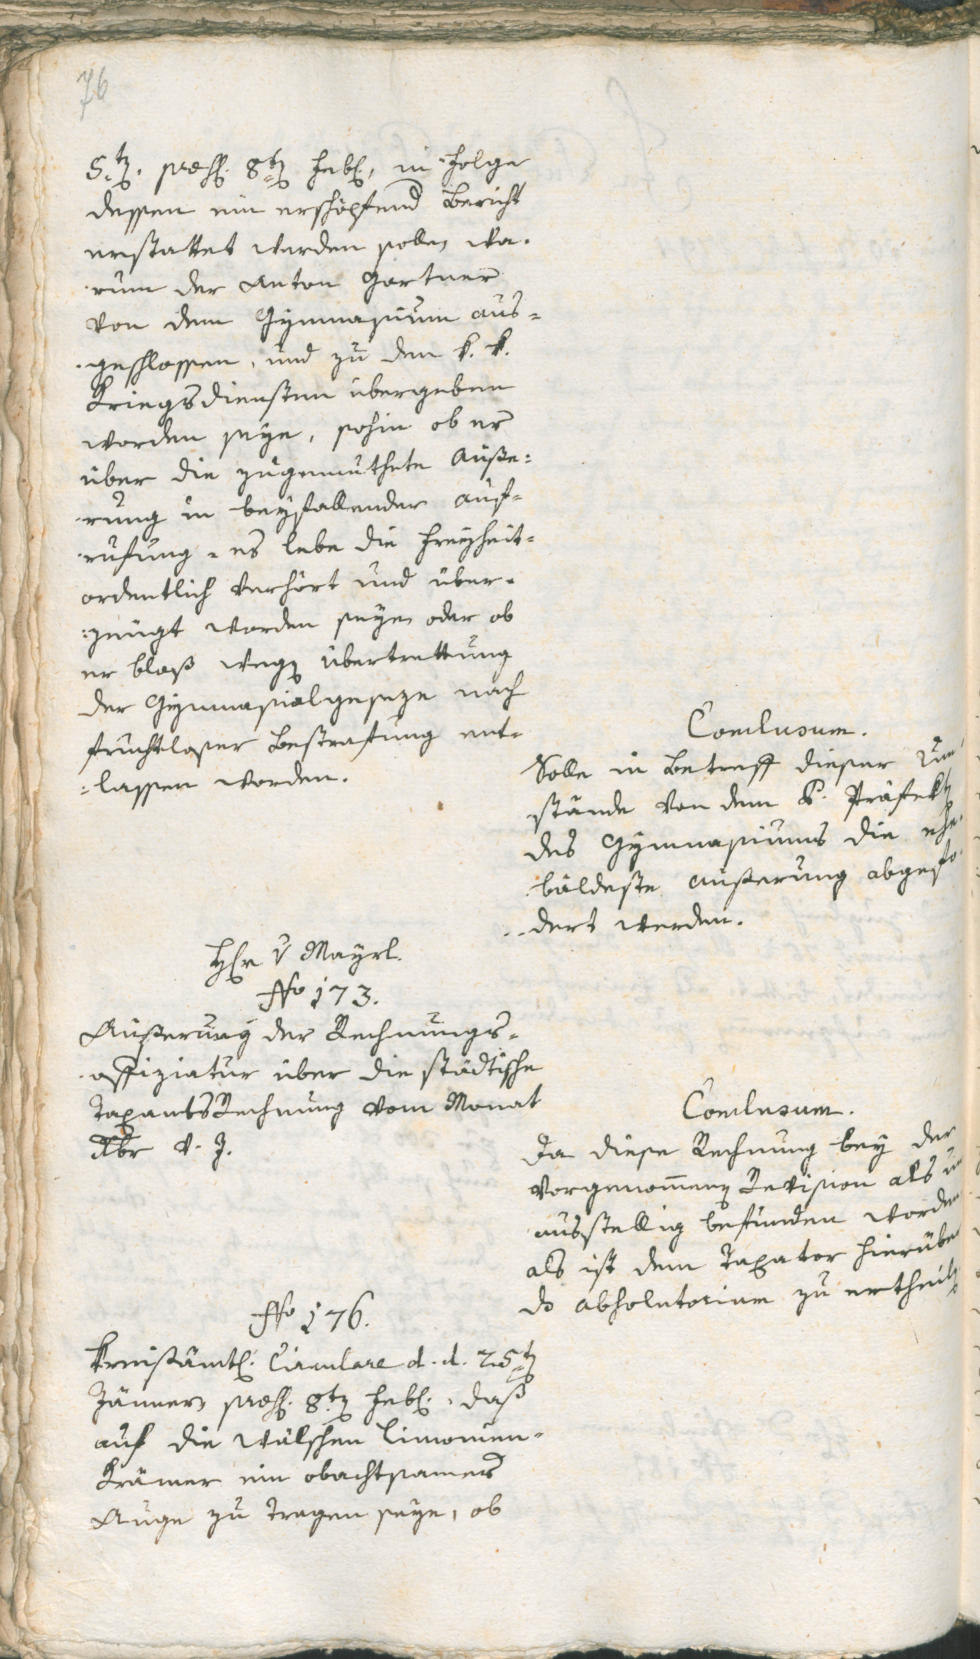 76
5tn. præs. 8tn Febr., in Folge
dessen ein erschöpfend Bericht
erstattet werden solle, wa-
rum der Anton Gartner
von dem Gymnasium aus-
geschlossen, und zu den k. k.
Kriegsdiensten übergeben
worden seye, sohin ob er
über die zugemuthete Äuße-
rung in beyfallender Aus-
rufung - es lebe die Freyheit -
ordentlich verhört und über-
zeugt worden seye, oder ob
er bloß wegen Übertrettung
der Gymnasialgeseze nach
fruchtloser Bestrafung ent-
lassen worden.
Conclusum.
Solle in Betreff dieser Um-
stände von dem H. Präfekt
des Gymnasiums die ehe-
bäldeste Äußerung abgefo-
dert werden.
Hr. v Mayrl.
No 173.
Äußerung der Rechnungs-
offiziatur über die städtische
Taxamts Rechnung vom Monat
Xbr v. J.
Conclusum.
Da diese Rechnung bey der
vorgenommenen Revision als un
ausstellig befunden worden
als ist dem Taxator hierüber
das absolutorium zu ertheilen
No 176.
Kreisämtl. Circulare d. d. 25tn
Jänner, præs. 8tn Febr., daß
auf die wälschen Limonien-
Krämer ein obachtsames
Auge zu tragen seye, ob